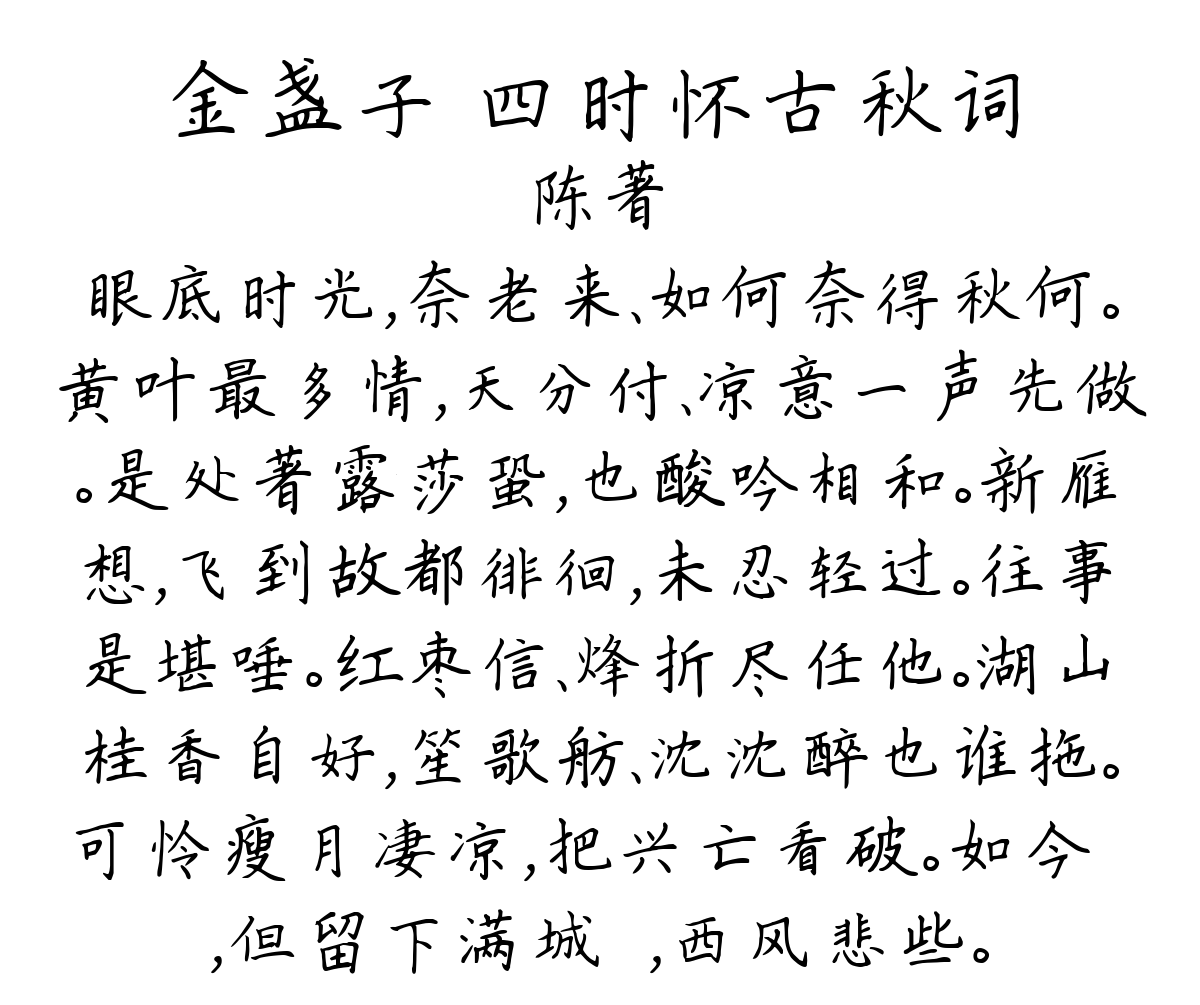 金盏子 四时怀古秋词
陈著
眼底时光,奈老来、如何奈得秋何。
黄叶最多情,天分付、凉意一声先做
。是处著露莎蛩,也酸吟相和。新雁
想,飞到故都徘徊,未忍轻过。往事
是堪唾。红枣信、烽折尽任他。湖山
桂香自好,笙歌舫、沈沈醉也谁拖。
可怜瘦月凄凉,把兴亡看破。如今
,但留下满城 ,西风悲些。